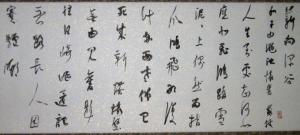 和子由澠池懷舊 蘇軾
人生到處知何似
應似飛鴻踏雪
泥泥上偶然留指
爪鴻飛那復
計東西老僧已
死成新塔壞壁
無由見舊題
往日崎嶇還記
否路長人困
蹇驢嘶